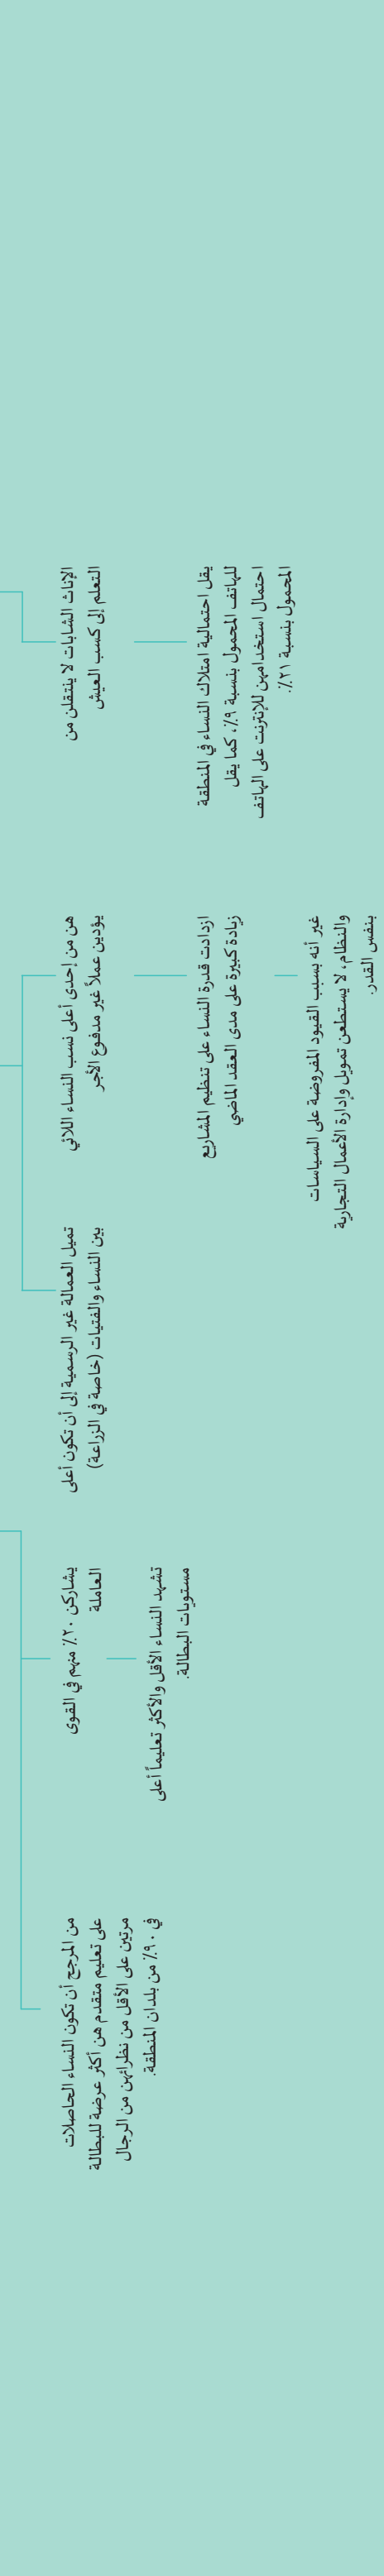 الإناث الشابات لا ينتقلن من
التعلم إلى كسب العيش
يقل احتمالية امتلاك النساء في المنطقة
للهاتف المحمول بنسبة ٩٪، كما يقل
احتمال استخدامهن للإنترنت على الهاتف
المحمول بنسبة ٢١٪.
هن من إحدى أعلى نسب النساء اللاتي
يؤدين عملاً غير مدفوع الأجر
ازدادت قدرة النساء على تنظيم المشاريع
زيادة كبيرة على مدى العقد الماضي
غير أنه بسبب القيود المفروضة على السياسات
والنظام، لا يستطعن تمويل وإدارة الأعمال التجارية
بنفس القدر.
تميل العمالة غير الرسمية إلى أن تكون أعلى
بين النساء والفتيات (خاصة في الزراعة)
يشاركن ٢٠٪ منهم في القوى
العاملة
تشهد النساء الأقل والأكثر تعليماً أعلى
مستويات البطالة.
من المرجح أن تكون النساء الحاصلات
على تعليم متقدم هن أكثر عرضة للبطالة
مرتين على الأقل من نظرائهن من الرجال
في ٩٠٪ من بلدان المنطقة.